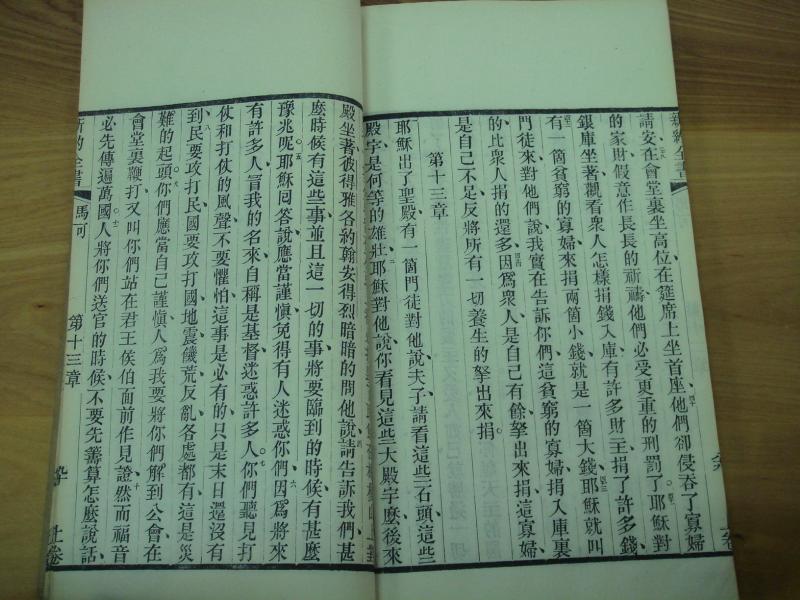 請安在會堂裏坐高位在筵席上坐首座他們卻侵吞了寡婦
的家財假意作長長的祈禱他們必受更重的刑罰了耶穌對
銀庫坐著觀看衆人怎樣捐錢入庫有許多財主捐了許多錢
有一箇貧窮的寡婦來捐兩箇小錢就是一箇大錢耶穌就叫
門徒來對他們說我實在告訴你們這貧窮的寡婦捐入庫裏
的比衆人捐的還多因爲衆人是自己有餘拏出來捐這寡婦
是自己不足反將所有一切養生的拏出來捐
第十三章
耶穌出了聖殿有一箇門徒對他說夫子請看這些石頭這些
殿宇是何等的雄壯耶穌對他說你看見這些大殿宇麼後來
殿坐著彼得雅各約翰安得烈暗暗的問他說請告訴我們甚
麼時候有這些事並且這一切的事將要臨到的時候有甚麼
豫兆呢耶穌回答說應當謹愼免得有人迷惑你們因爲將來
有許多人冒我的名來自稱是基督迷惑許多人你們聽見打
仗和打仗的風聲不要懼怕這事是必有的只是末日還沒有
到民要攻打民國要攻打國地震饑荒反亂各處都有這是災
難的起頭你們應當自己謹愼人爲我要將你們解到公會在
會堂裏鞭打又叫你們站在君王侯伯面前作見證然而福音
必先傳遍萬國人將你們送官的時候不要先籌算怎麼說話
新約全書 馬可 第十三章 上卷